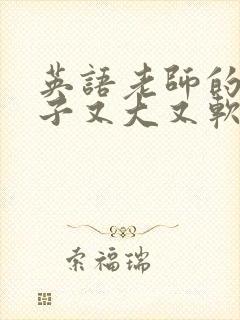 英語老師的
子又大又軟
索福瑞